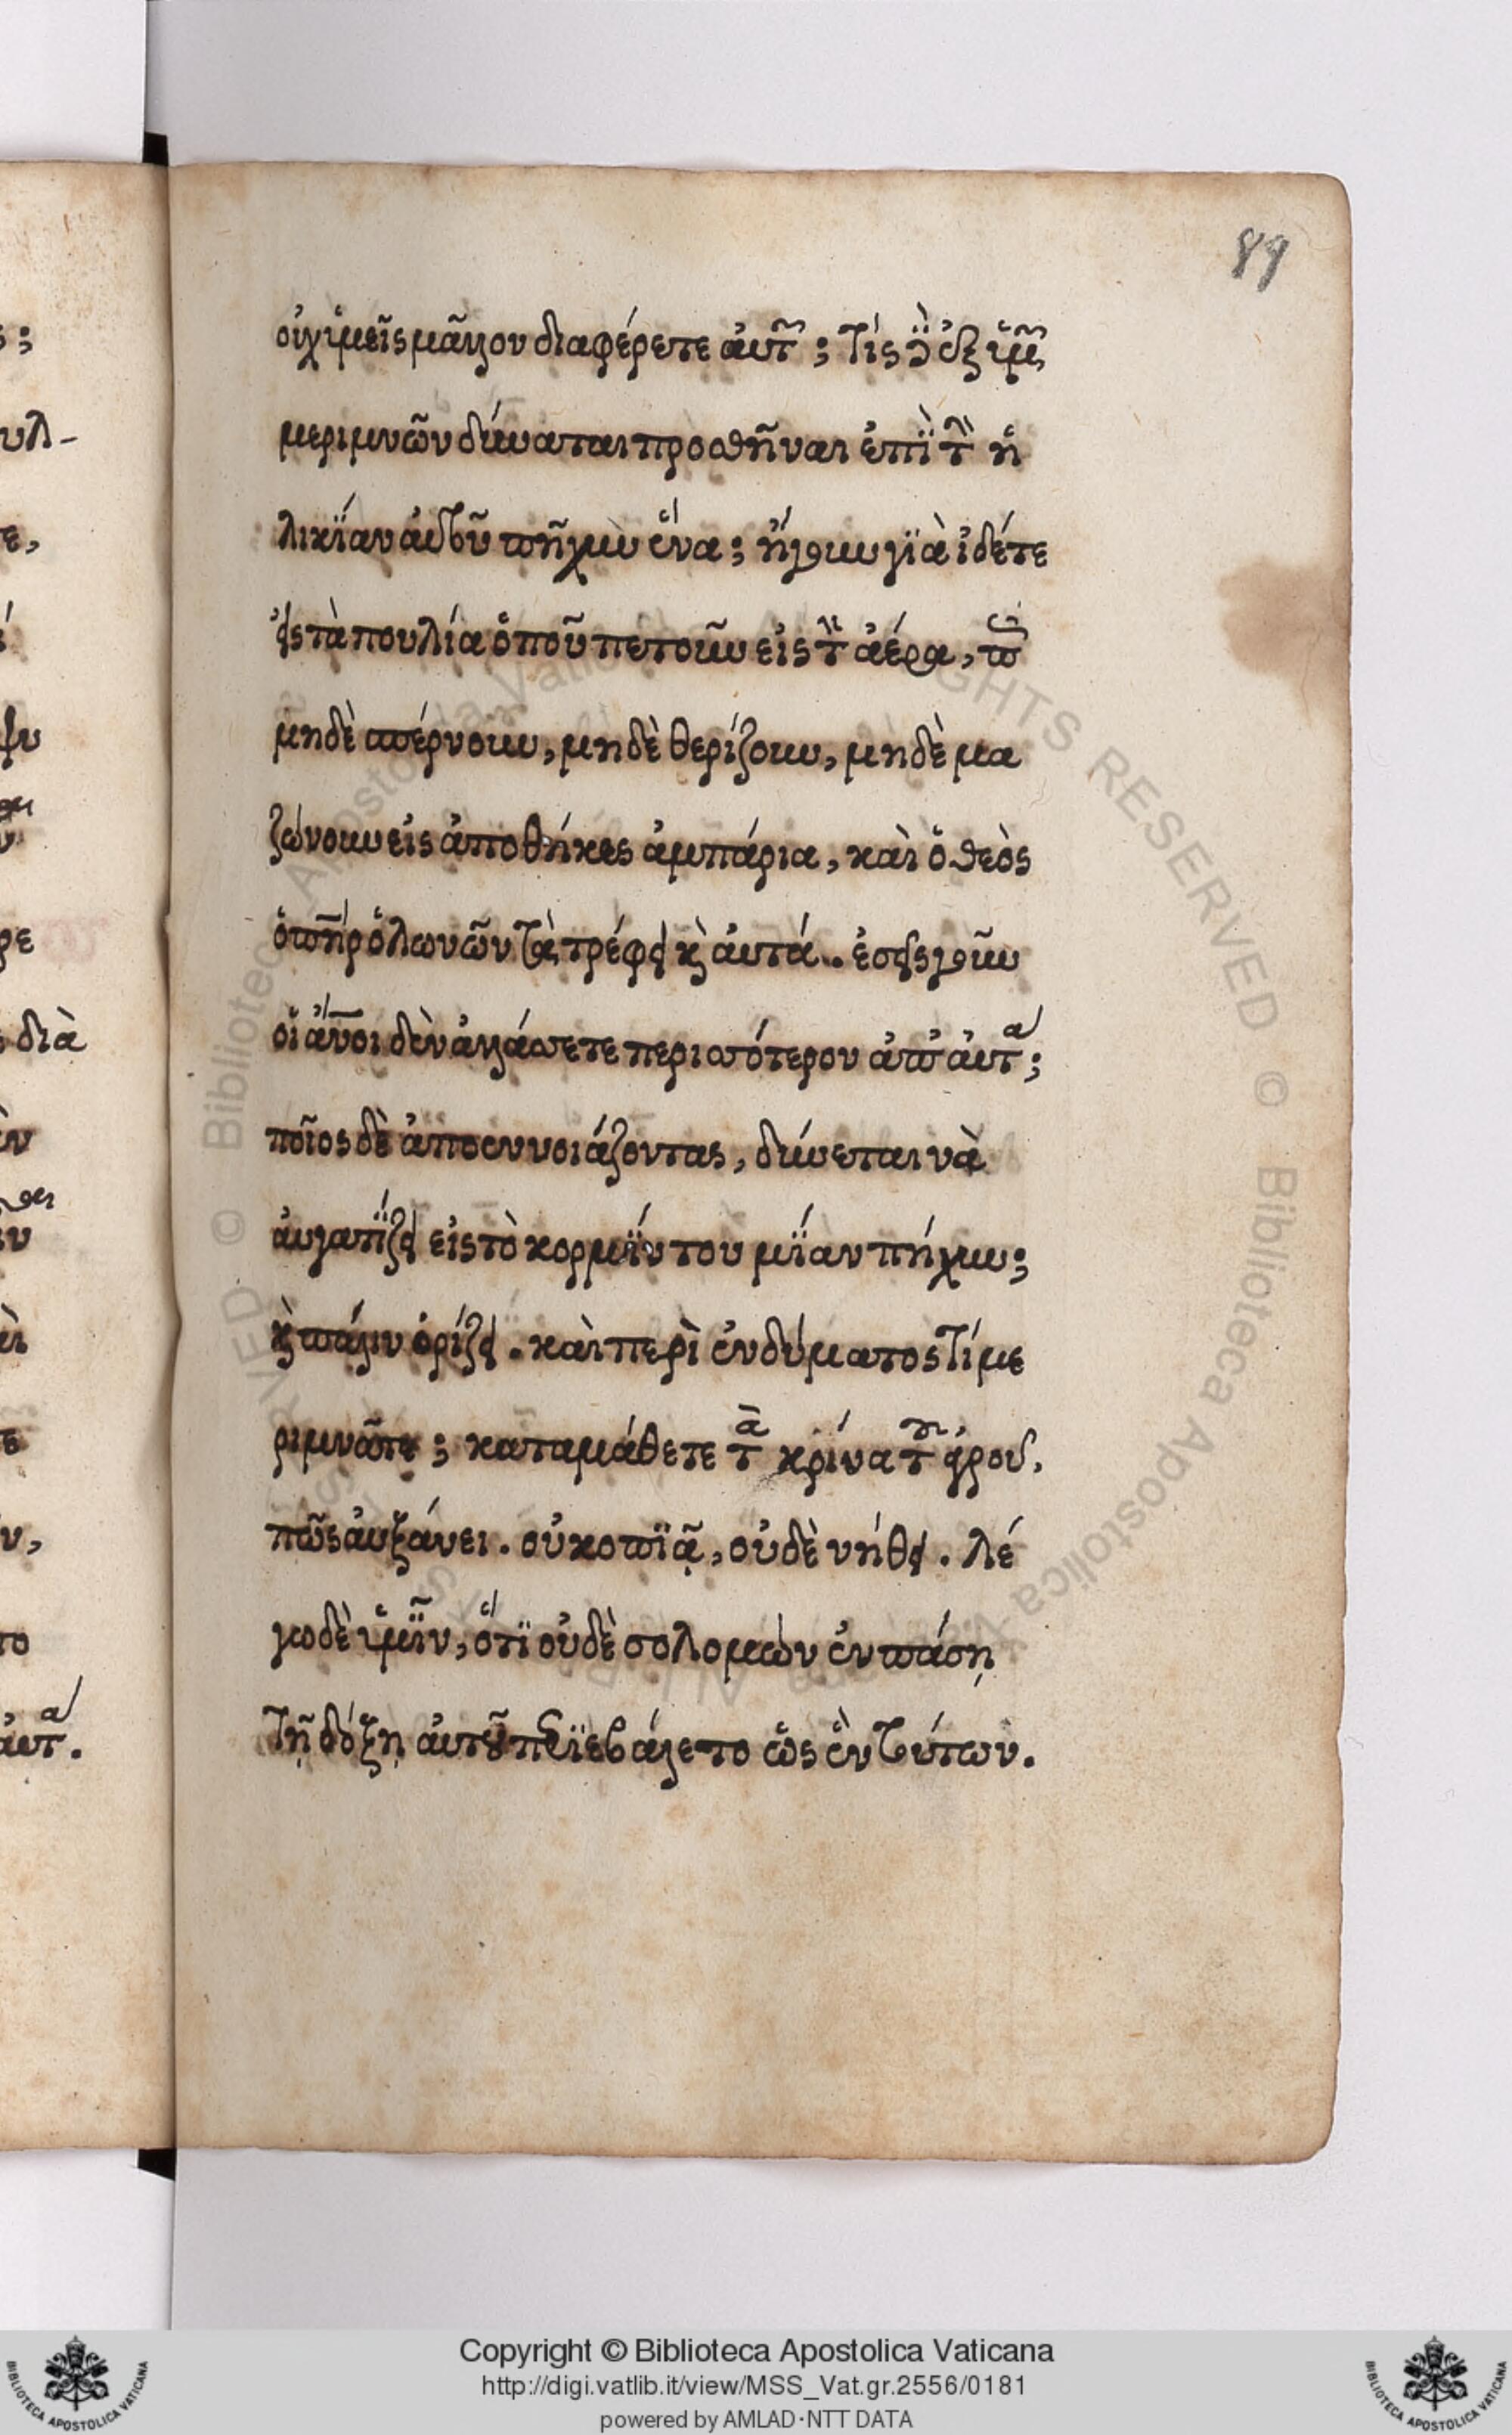 89
οὐχ ὑμεῖς μᾶλλον διαφέρετε αὐτῶν; τίς δὲ ἐξ ὑμῶν
μεριμνῶν δύναται προσθῆναι ἐπῒ τὴν ἡ
λικΐαν αὐτοῦ πῆχυν ἕνα; ἤγουν γϊὰ ἰδέτε
εἰς τὰ πουλία ὁποῦ πετοῦν εἰς τὸν ἀέρα, πῶς
μηδὲ σπέρνουν, μηδὲ θερίζουν, μηδὲ μα
ζώνουν εἰς ἀποθήκες ἀμπάρια, καὶ ὁ θεὸς
ὁ πῆρ ὁλωνῶν τὰς τρέφει κὶ αὐτά. ἐσεῖς γοῦν
οἱ ἄνοι δὲν ἀλλάσετε περισσότερον ἀπ' αὐτά;
ποῖος δὲ ἀποσυννοιάζοντας, δύνεται νὰ
εἰς τὸ κορμΐν του μΐαν πήχυν;
κὶ πάλιν ὁρίζει. καὶ περὶ ἐνδύματος τί με
ριμνᾶτε; καταμάθετε τὰ κρίνα τοῦ ἀγροῦ,
πῶς αὐξάνει. οὐ κοπϊᾷ, οὐδὲ νήθει. λέ
γω δὲ ὑμῖν, ὅτϊ οὐδὲ σολομὼν ἐν πάσῃ
τῇ δόξῃ αὐτοῦ περϊεβάλετο ὡς ἓν τούτων.
ς;
υλ-
τε,
διὰ
αὐτά.
Copyright © Biblioteca Apostolica Vaticana
http://digi.vatlib.it/view/MSS_Vat.gr.2556/0181
powered by AMLAD·NTT DATA